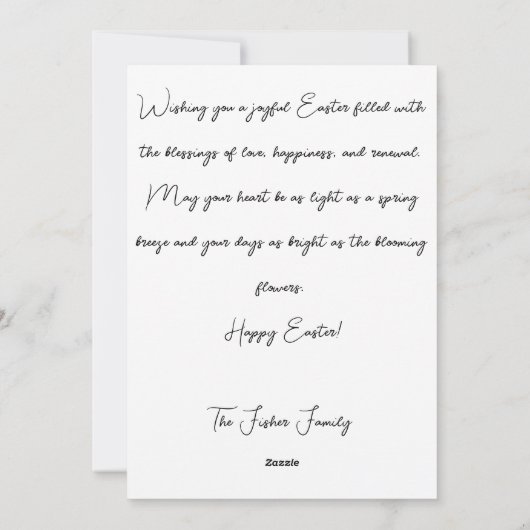 Wishing you a joyful Easter filled with
the blessings of love, happiness, and renewal.
May your heart be as light as a spring
breeze and your days as bright as the blooming
flowers.
Happy Easter!
The Fisher Family
Zazzle